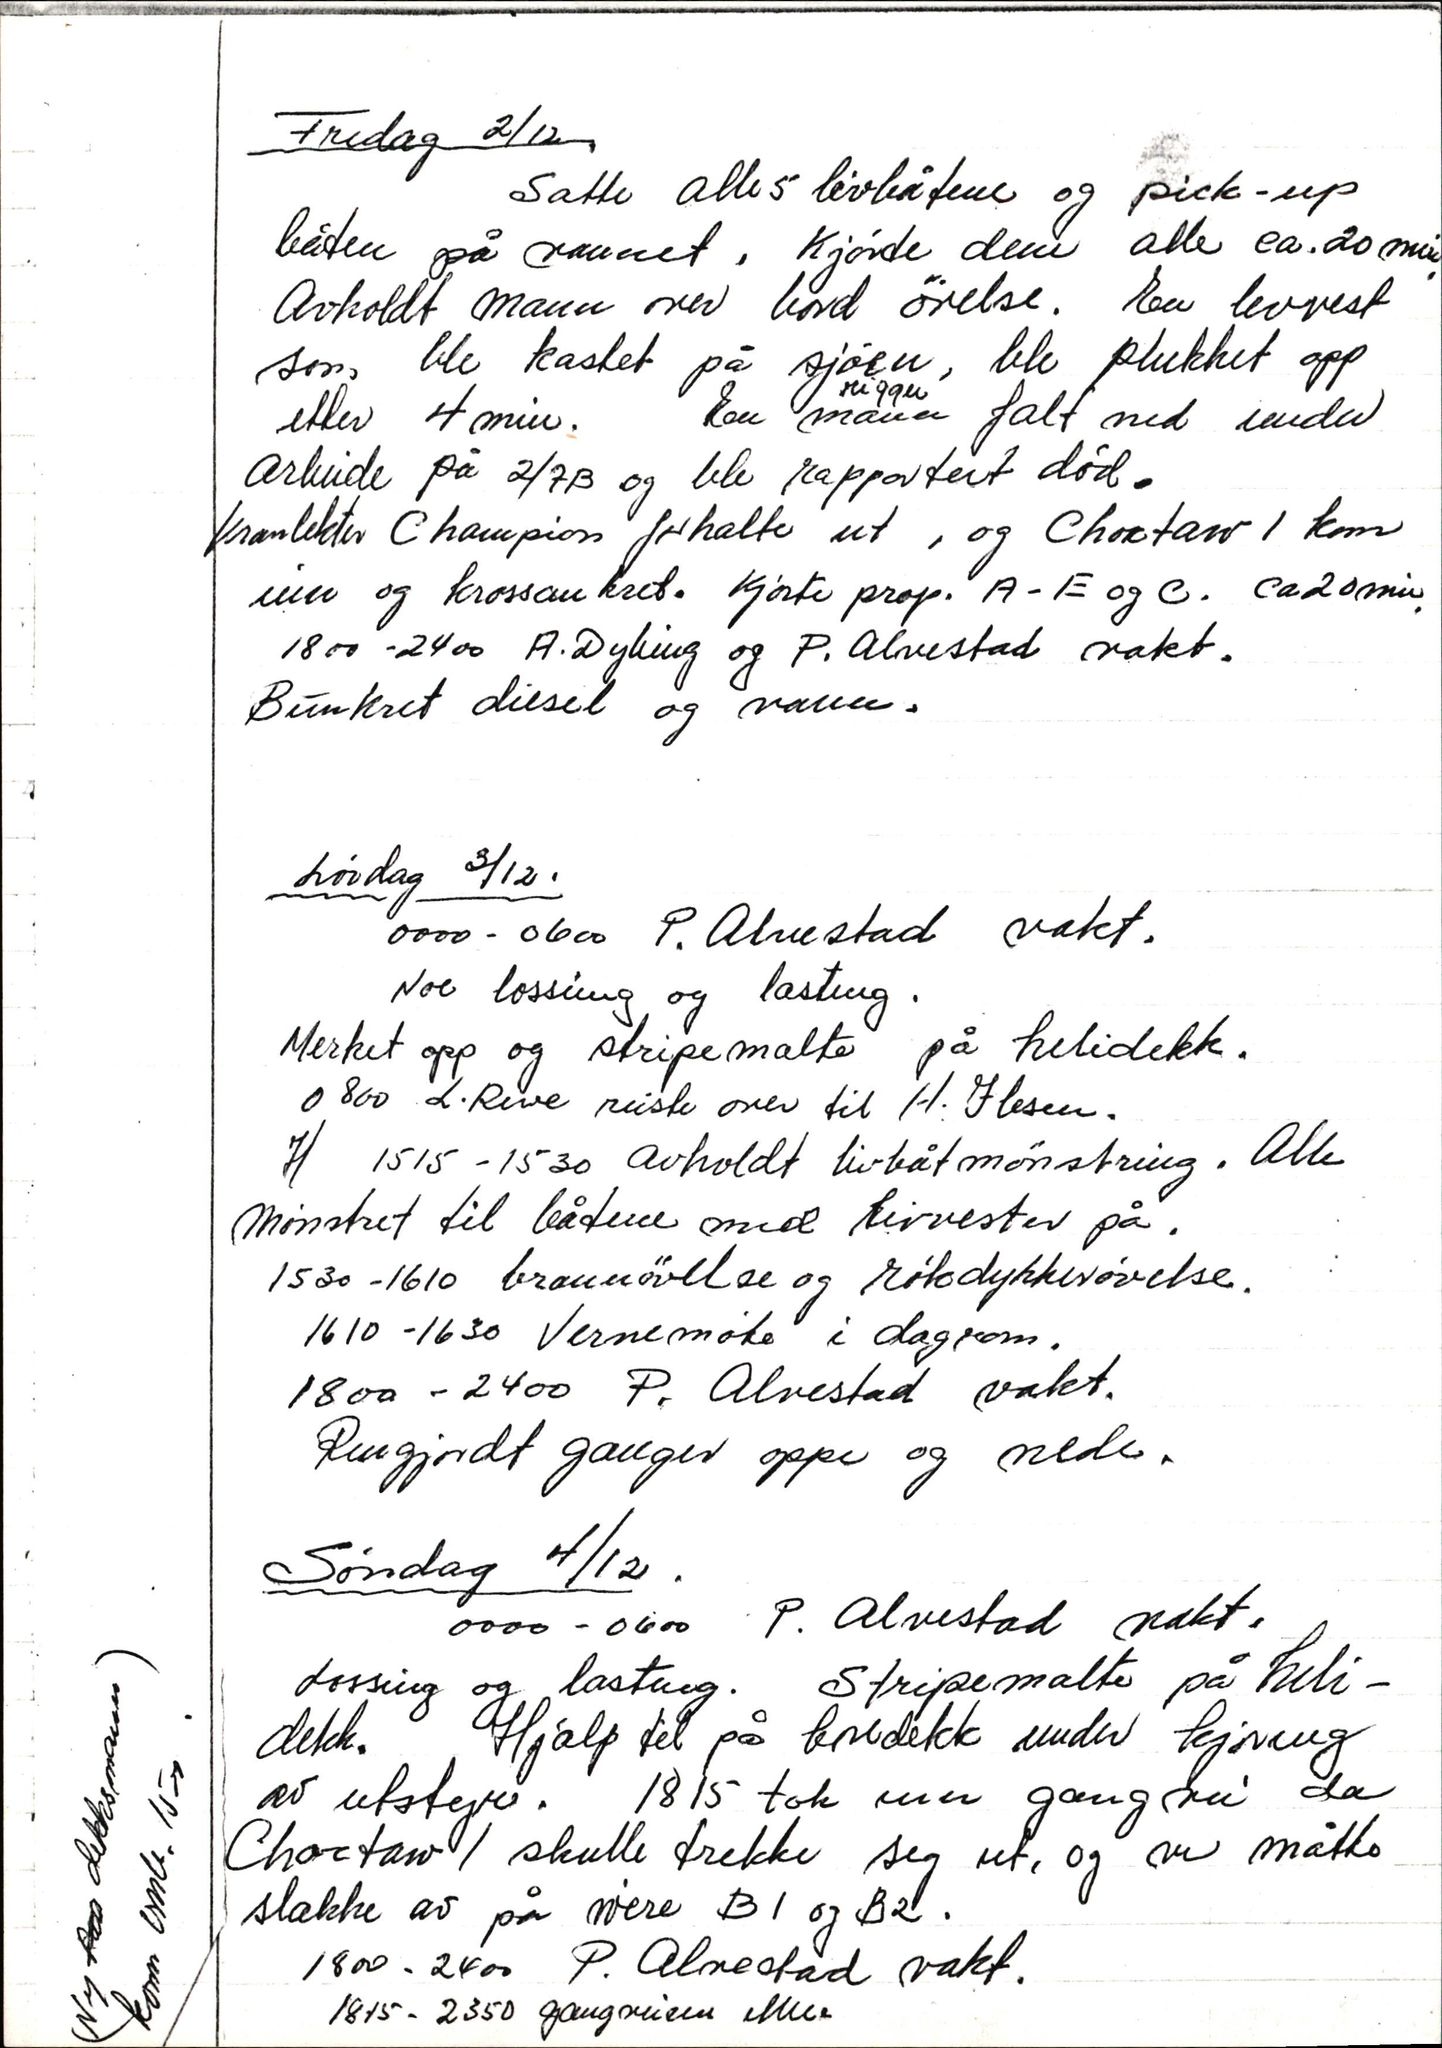 Fredag 2/12.
Satte alle 5 livbåtene og pick-up
båten på vannet. Kjørte dem alle ca. 20 min.
Avholdt mann over bord øvelse. En livvest
som ble kastet på sjøen, ble plukket opp
rigger
etter 4 min. En mann falt ned under
arbeide på 2/7B og ble rapportert død.
Kranlekter Champion forhalte ut, og Choctaw 1 kom
inn og krossankret. Kjørte prop. A-E og C. ca 20 min.
1800-2400 A. Dybing og P. Alvestad vakt.
Bunkret diesel og vann.
Lørdag 3/12.
0000-0600 P. Alvestad vakt.
Noe lossing og lasting.
Merket opp og stripemalte på helidekk.
0800 L. Reve reiste over til H.
1515-1530 Avholdt livbåtmønstring. Alle
mønstret til båtene med livvester på.
1530-1610 brannøvelse og røkdykkerøvelse.
1610-1630 Vernemøte i dagrom.
1800-2400 P. Alvestad vakt.
Rengjordt ganger oppe og nede.
Søndag 4/12.
0000-0600 P. Alvestad vakt.
Lossing og lasting. Stripemalte på heli-
dekk. Hjalp til på boredekk under kjøring
av utstyr. 1815 tok inn gangvei da
Choctaw 1 skulle trekke seg ut, og vi måtte
slakke av på wire B1 og B2.
1800-2400 P. Alvestad vakt.
1815-2350 gangveien inne.
(Ny dekksmann)
kom omb.